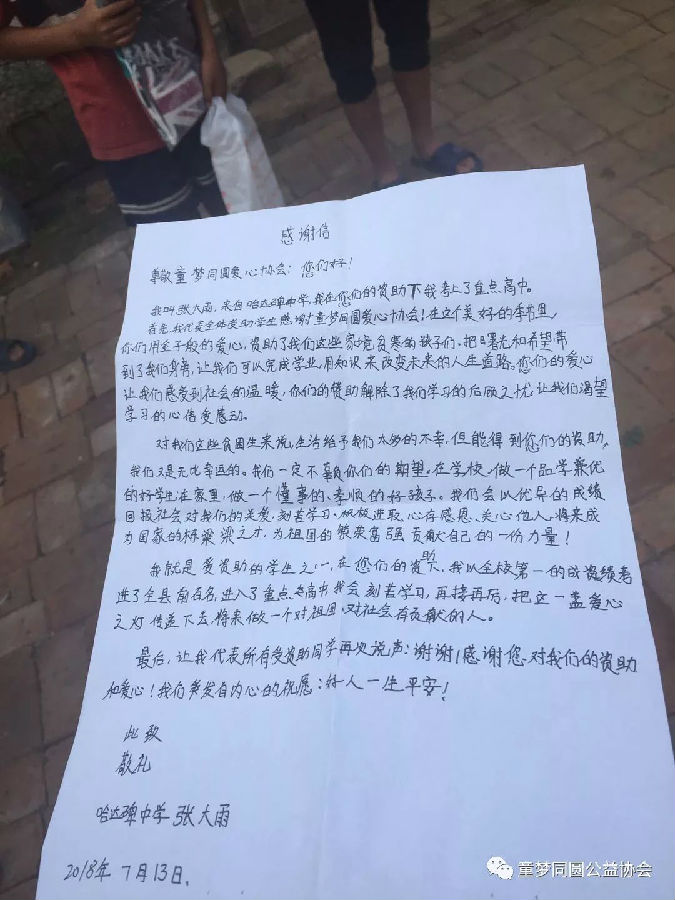 感谢信
尊敬童梦同圆爱心协会：您们好！
我叫张大雨，来自哈达碑中学，我在您们的资助下我考上了重点高中。
首先，我代表全体受助学生感谢童梦同圆爱心协会！在这个美好的季节里，
你们用金子般的爱心，资助了我们这些家境贫寒的孩子们，把曙光和希望带
到了我们身旁，让我们可以完成学业，用知识来改变未来的人生道路。您们的爱心
让我们感受到社会的温暖，你们的赞助解除了我们学习的后顾之忧，让我们渴望
学习的心倍受感动。
对我们这些贫困生来说，生活给予我们太多的不幸，但能得到您们的资助，
我们又是无比幸运的。我们一定不辜负你们的期望，在学校，做一个品学兼优
的好学生；在家里，做一个懂事的、孝顺的好孩子。我们会以优异的成绩
回报社会对我们的关爱，刻苦学习，积极进取，心存感恩，关心他人，将来成
为国家的栋梁之才，为祖国的繁荣富强贡献自己的一份力量！
我就是受资助的学生之一，在您们的资助下，我以全校第一的成绩考
进了全县前百名，进入了重点高中，我会刻苦学习，再接再厉，把这一盏爱心
之灯传递下去，将来做一个对祖国，对社会有贡献的人。
最后，让我代表所有受资助同学再次说声：谢谢！感谢您对我们的资助
和爱心！我们发自内心的祝愿：好人一生平安！
此致
敬礼
哈达碑中学 张大雨
2018年7月13日.
童梦同圆公益协会